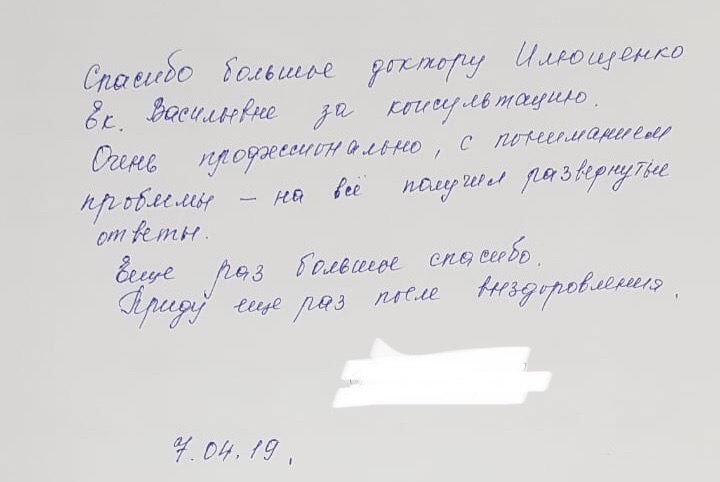 Спасибо большое доктору Илющенко
Ек. Васильевне за консультацию.
Очень профессионально, с пониманием
проблемы – на всё получил развернутые
ответы.
Еще раз большое спасибо.
Приду еще раз после выздоровления.
7.04.19.